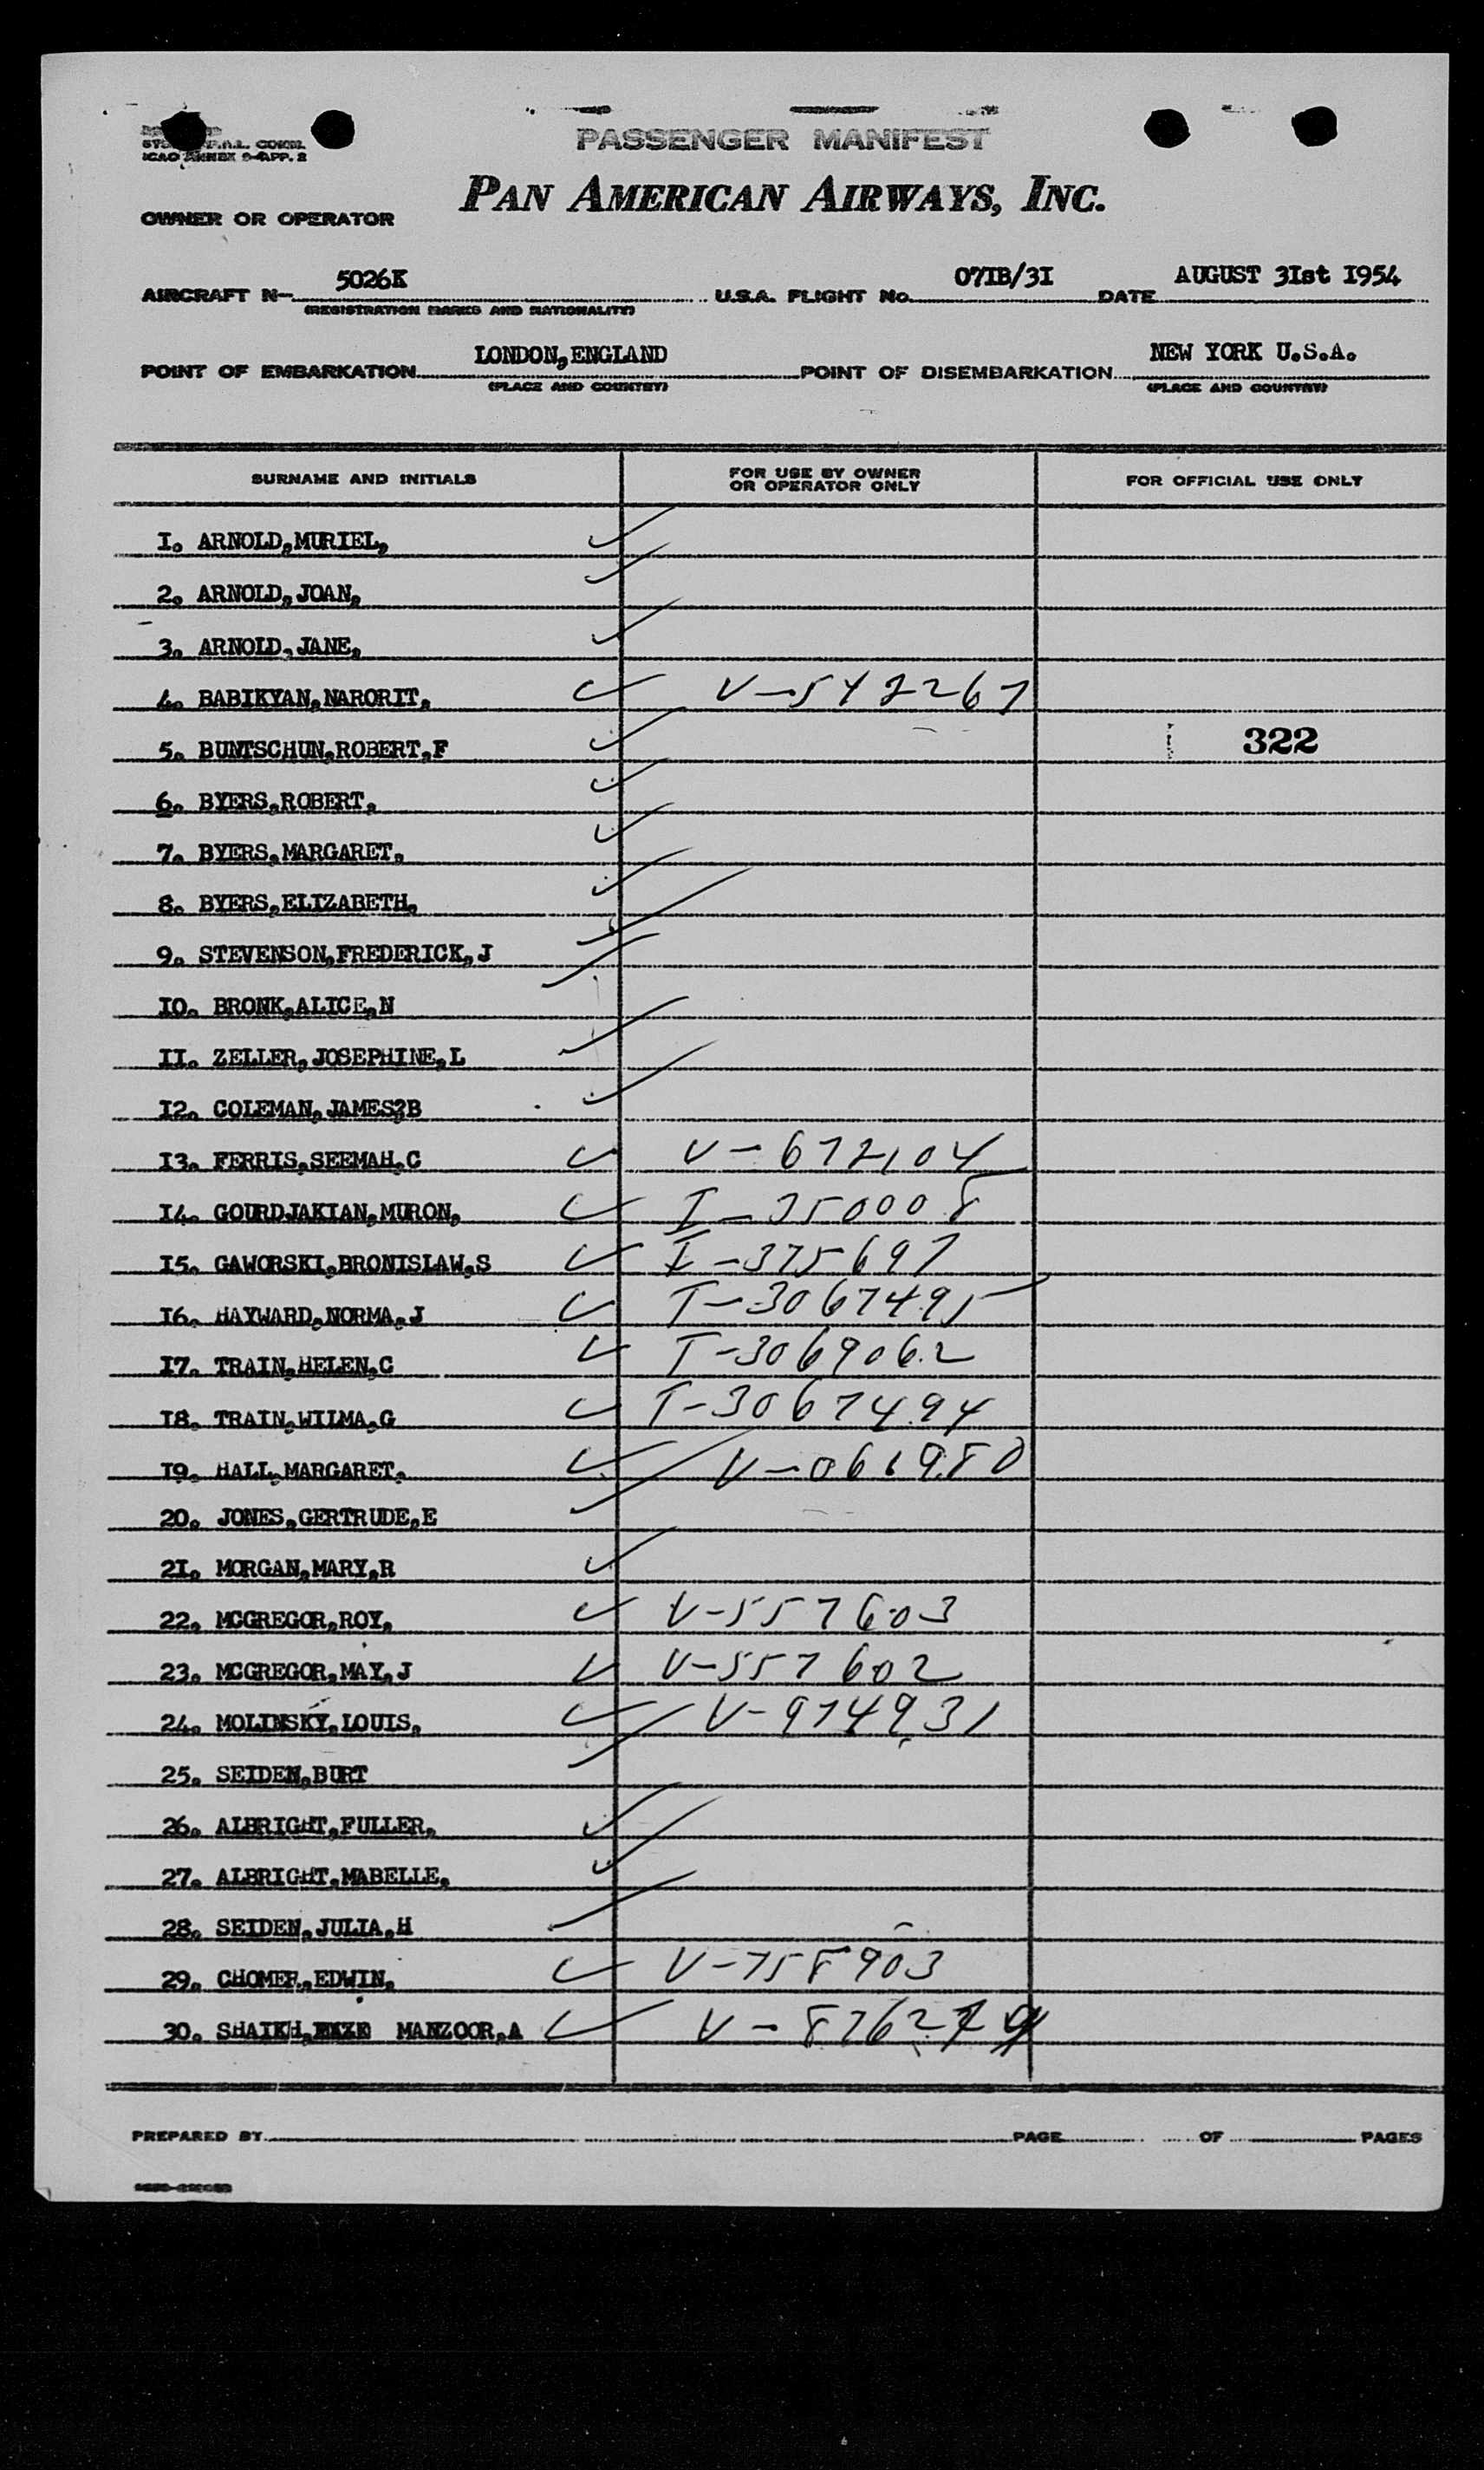 PASSENGER MANIFEST
ICAO ANNEX 9-APP. 2
PAN AMERICAN AIRWAYS, INC.
OWNER OR OPERATOR
AIRCRAFT N- 5026K U.S.A. FLIGHT No. 07IB/3I DATE AUGUST 3Ist I954
(REGISTRATION MARKS AND NATIONALITY)
POINT OF EMBARKATION LONDON,ENGLAND POINT OF DISEMBARKATION NEW YORK U.S.A.
(PLACE AND COUNTRY) (PLACE AND COUNTRY)
SURNAME AND INITIALS FOR USE BY OWNER OR OPERATOR ONLY FOR OFFICIAL USE ONLY
I. ARNOLD,MURIEL,
2. ARNOLD,JOAN,
3. ARNOLD,JANE,
4. BABIKYAN,NARORIT, V-542267
5. BUNTSCHUN,ROBERT,F 322
6. BYERS,ROBERT,
7. BYERS,MARGARET,
8. BYERS,ELIZABETH,
9. STEVENSON,FREDERICK,J
I0. BRONK,ALICE,N
II. ZELLER,JOSEPHINE,L
I2. COLEMAN,JAMES?B
I3. FERRIS,SEEMAH,C V-672104
I4. GOURDJAKIAN,MURON, I-350008
I5. GAWORSKI,BRONISLAW,S I-375697
I6. HAYWARD,NORMA,J T-3067495
I7. TRAIN,HELEN,C T-3069062
I8. TRAIN,WILMA,G T-3067494
I9. HALL,MARGARET, V-061980
20. JONES,GERTRUDE,E
2I. MORGAN,MARY,R
22. MCGREGOR,ROY, V-557603
23. MCGREGOR,MAY,J V-557602
24. MOLINSKY,LOUIS, V-974931
25. SEIDEN,BURT
26. ALBRIGHT,FULLER,
27. ALBRIGHT,MABELLE,
28. SEIDEN,JULIA,H
29. CHOMER,EDWIN, V-758903
30. SHAIKH, MANZOOR,A
PREPARED BY PAGE OF PAGES